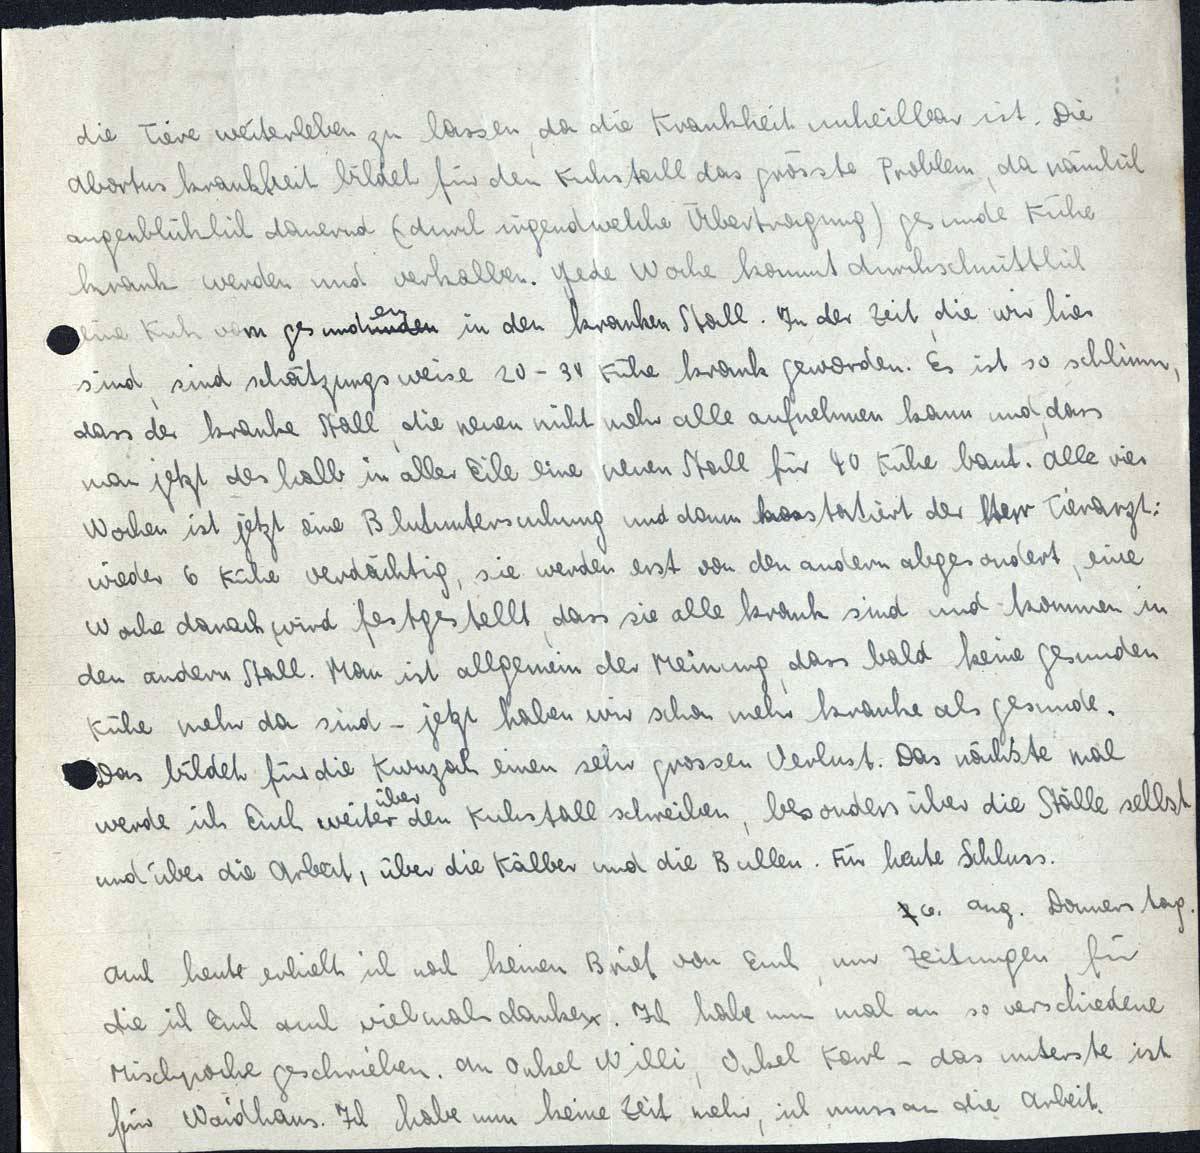 die Tiere weiterleben zu lassen, da die Krankheit unheilbar ist. Die
Abortus krankheit bildet für den Kuhstall das grösste Problem, da nämlich
augenblicklich dauernd (durch irgendwelche Übertragung) gesunde Kühe
krank werden und verkalben. Jede Woche kommt durchschnittlich
eine Kuh vom gesunden in den kranken Stall. In der Zeit, die wir hier
sind, sind schätzungsweise 20 - 30 Kühe krank geworden. Es ist so schlimm,
dass der kranke Stall, die neuen nicht mehr alle aufnehmen kann und, dass
man jetzt deshalb in aller Eile eine neuen Stall für 40 Kühe baut. Alle vier
Wochen ist jetzt eine Blutuntersuchung und dann konstatiert der Herr Tierarzt:
wieder 6 Kühe verdächtig, sie werden erst von den andern abgesondert, eine
Woche danach wird festgestellt, dass sie alle krank sind und kommen in
den andern Stall. Man ist allgemein der Meinung, dass bald keine gesunden
Kühe mehr da sind - jetzt haben wir schon mehr kranke als gesunde.
Das bildet für die Kwuzah einen sehr grossen Verlust. Das nächste mal
werde ich Euch weiter über den Kuhstall schreiben, besonders über die Ställe selbst
und über die Arbeit, über die Kälber und die Bullen. Für heute Schluss.
6. Aug. Donnerstag.
Auch heute erhielt ich noch keinen Brief von Euch, nur Zeitungen, für
die ich Euch auch vielmals danke. Ich habe nun mal an so verschiedene
Mischpoche geschrieben. An Onkel Willi, Onkel Karl - das unterste ist
für Waidhaus. Ich habe nun keine Zeit mehr, ich muss an die Arbeit.